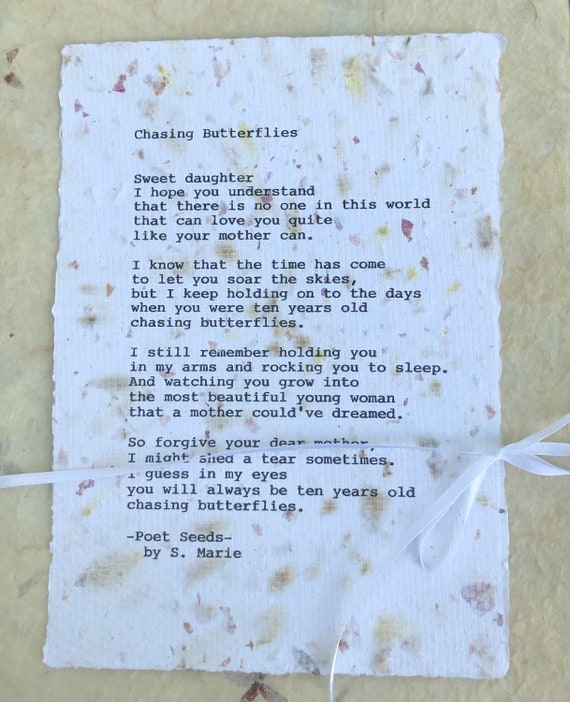 Chasing Butterflies
Sweet daughter
I hope you understand
that there is no one in this world
that can love you quite
like your mother can.
I know that the time has come
to let you soar the skies,
but I keep holding on to the days
when you were ten years old
chasing butterflies.
I still remember holding you
in my arms and rocking you to sleep.
And watching you grow into
the most beautiful young woman
that a mother could've dreamed.
So forgive your dear mother,
I might shed a tear sometimes.
I guess in my eyes
you will always be ten years old
chasing butterflies.
-Poet Seeds-
by S. Marie